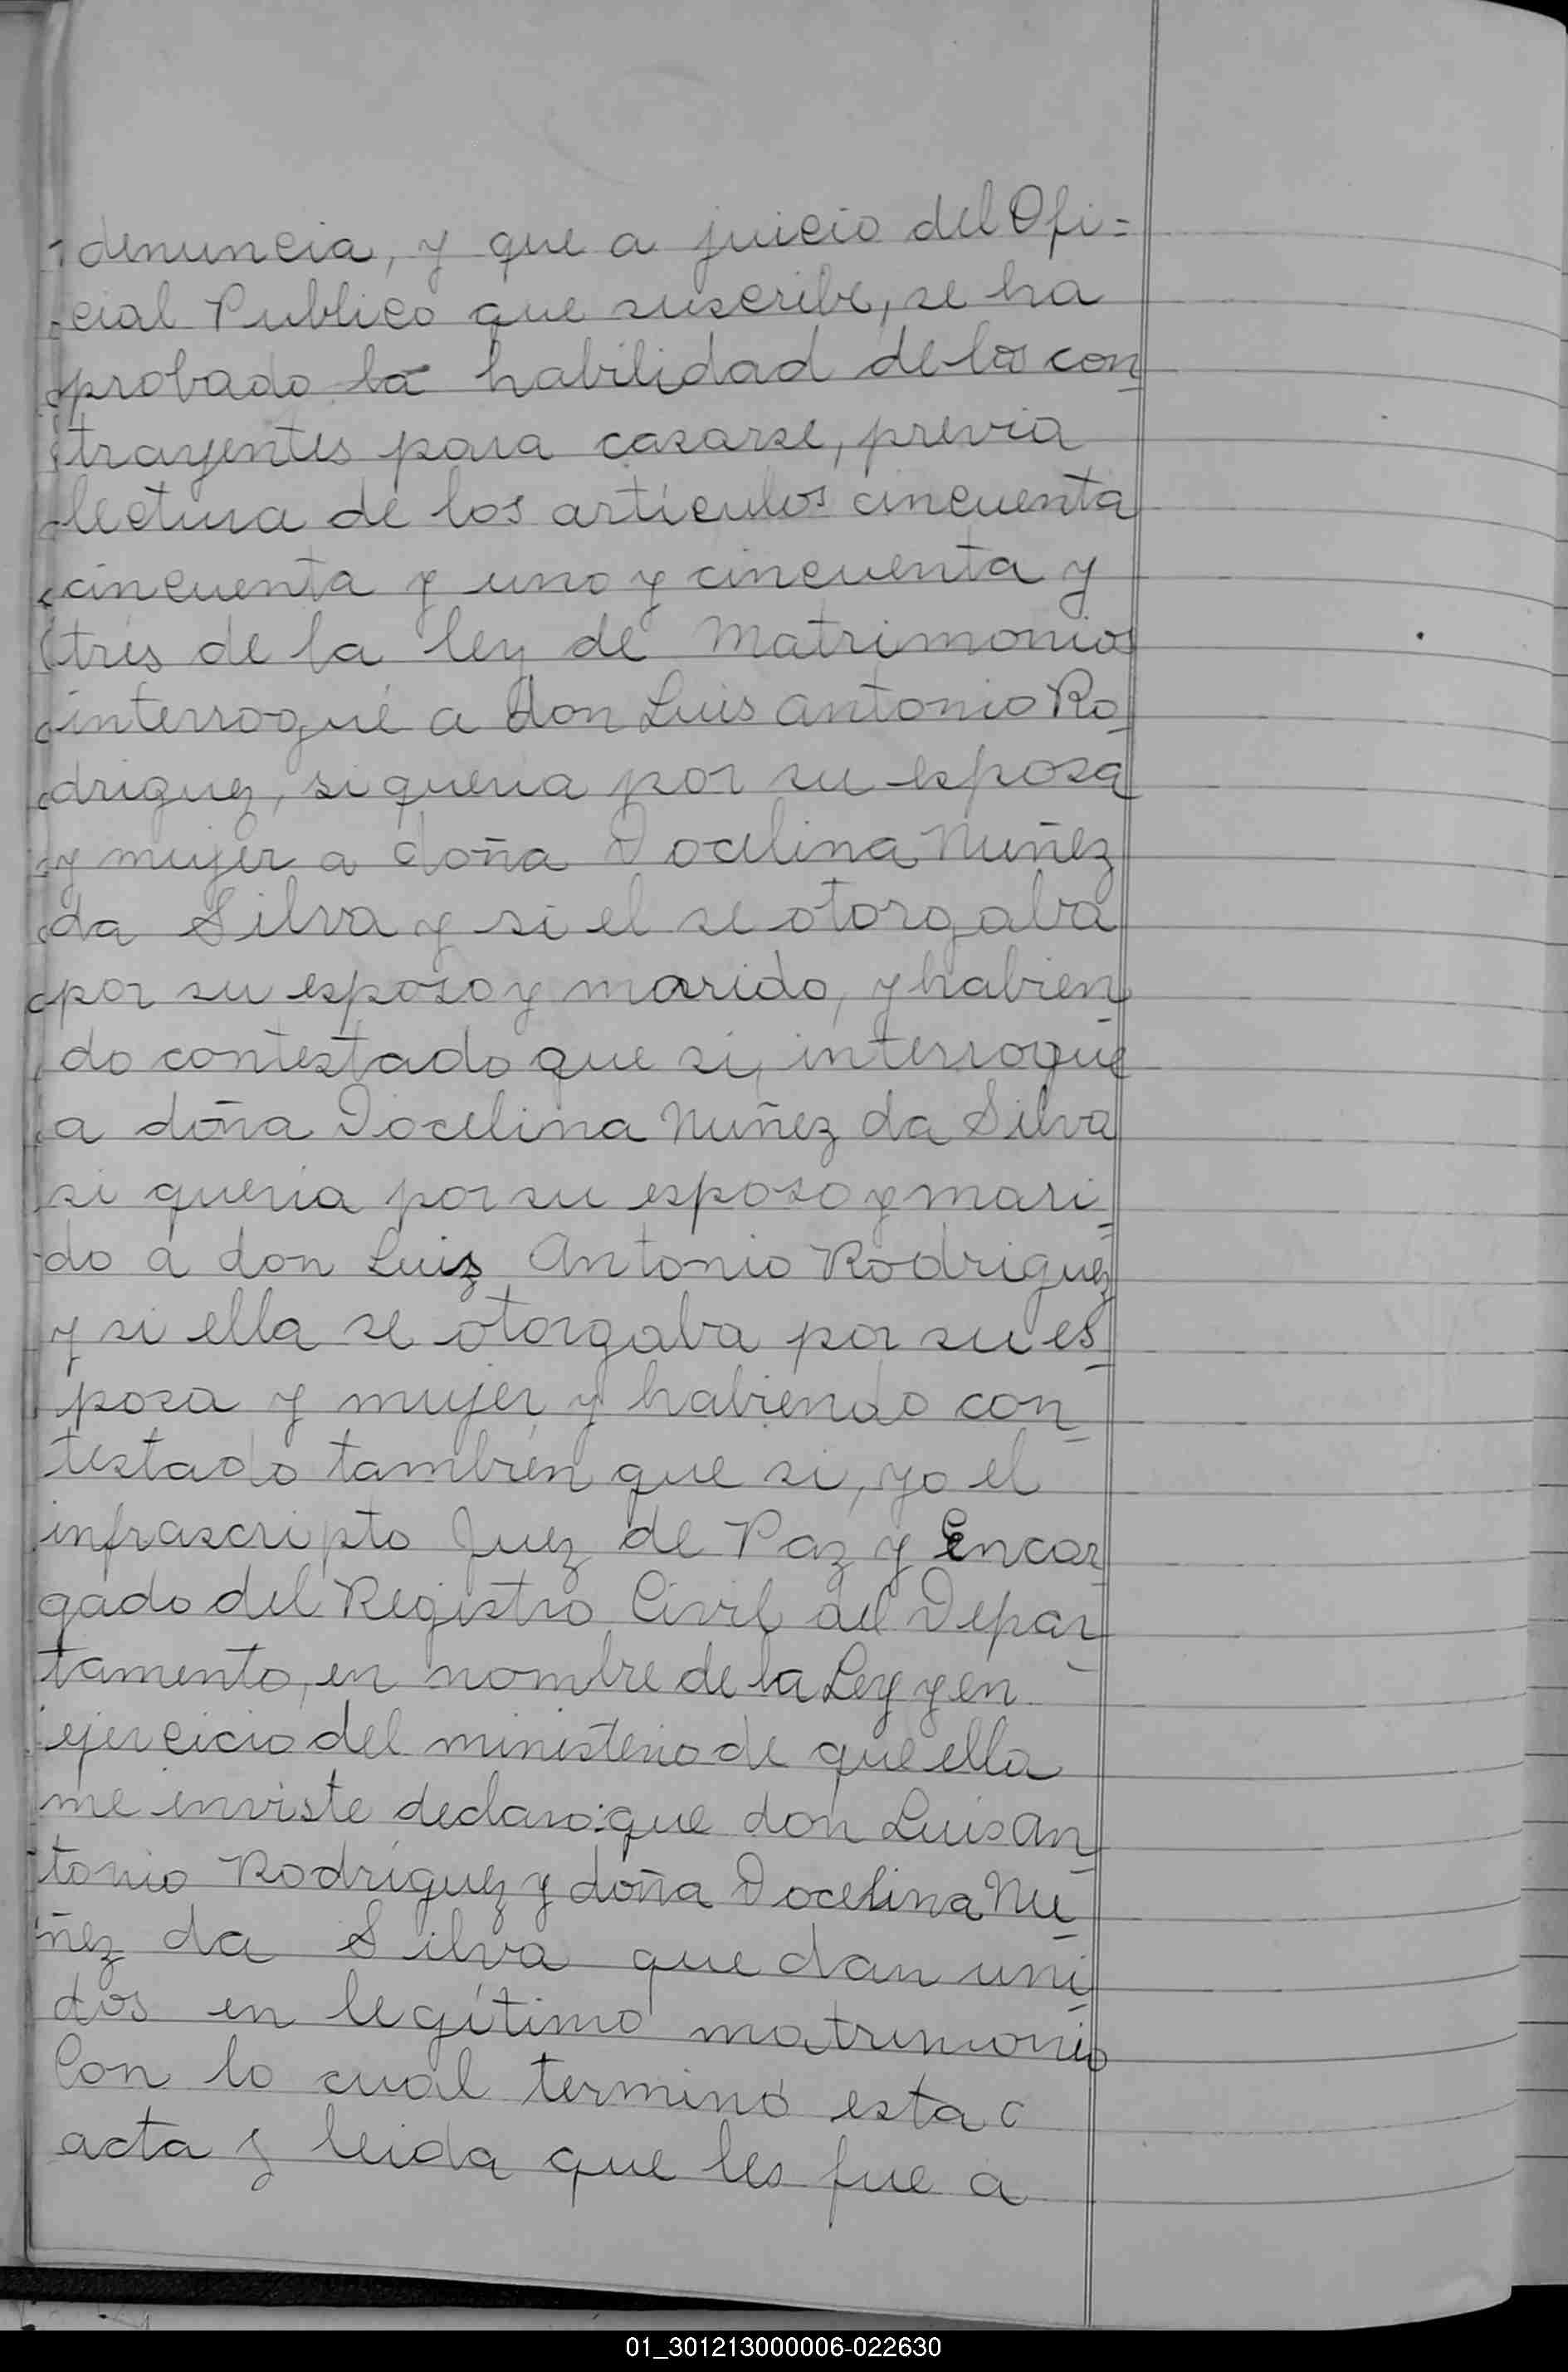 denuncia, y que a juicio del Ofi=
cial Publico que suscribe, se ha
probado la habilidad de los con-
trayentes para casarse, previa
lectura de los artículos cincuenta
cincuenta y uno y cincuenta y
tres de la ley de Matrimonios
interrogué a don Luis Antonio Ro-
driguez, si queria por su esposa
y mujer a doña Docelina Nuñez
da Silva y si el se otorgaba
por su esposo y marido, y habien-
do contestado que si, interrogué
a doña Docelina Nuñez da Silva
si queria por su esposo y mari-
do a don Luiz Antonio Rodriguez
y si ella se otorgaba por su es-
posa y mujer y habiendo con-
testado también que si, yo el
infrascripto Juez de Paz y Encar-
gado del Registro Civil del Depar-
tamento, en nombre de la Ley y en
ejercicio del ministerio de que ella
me inviste declaro: que don Luis An-
tonio Rodríguez y doña Docelina Nu-
ñez da Silva quedan uni-
dos en legítimo matrimonio
Con lo cual terminó esta
acta y leida que les fue a
01_301213000006-022630